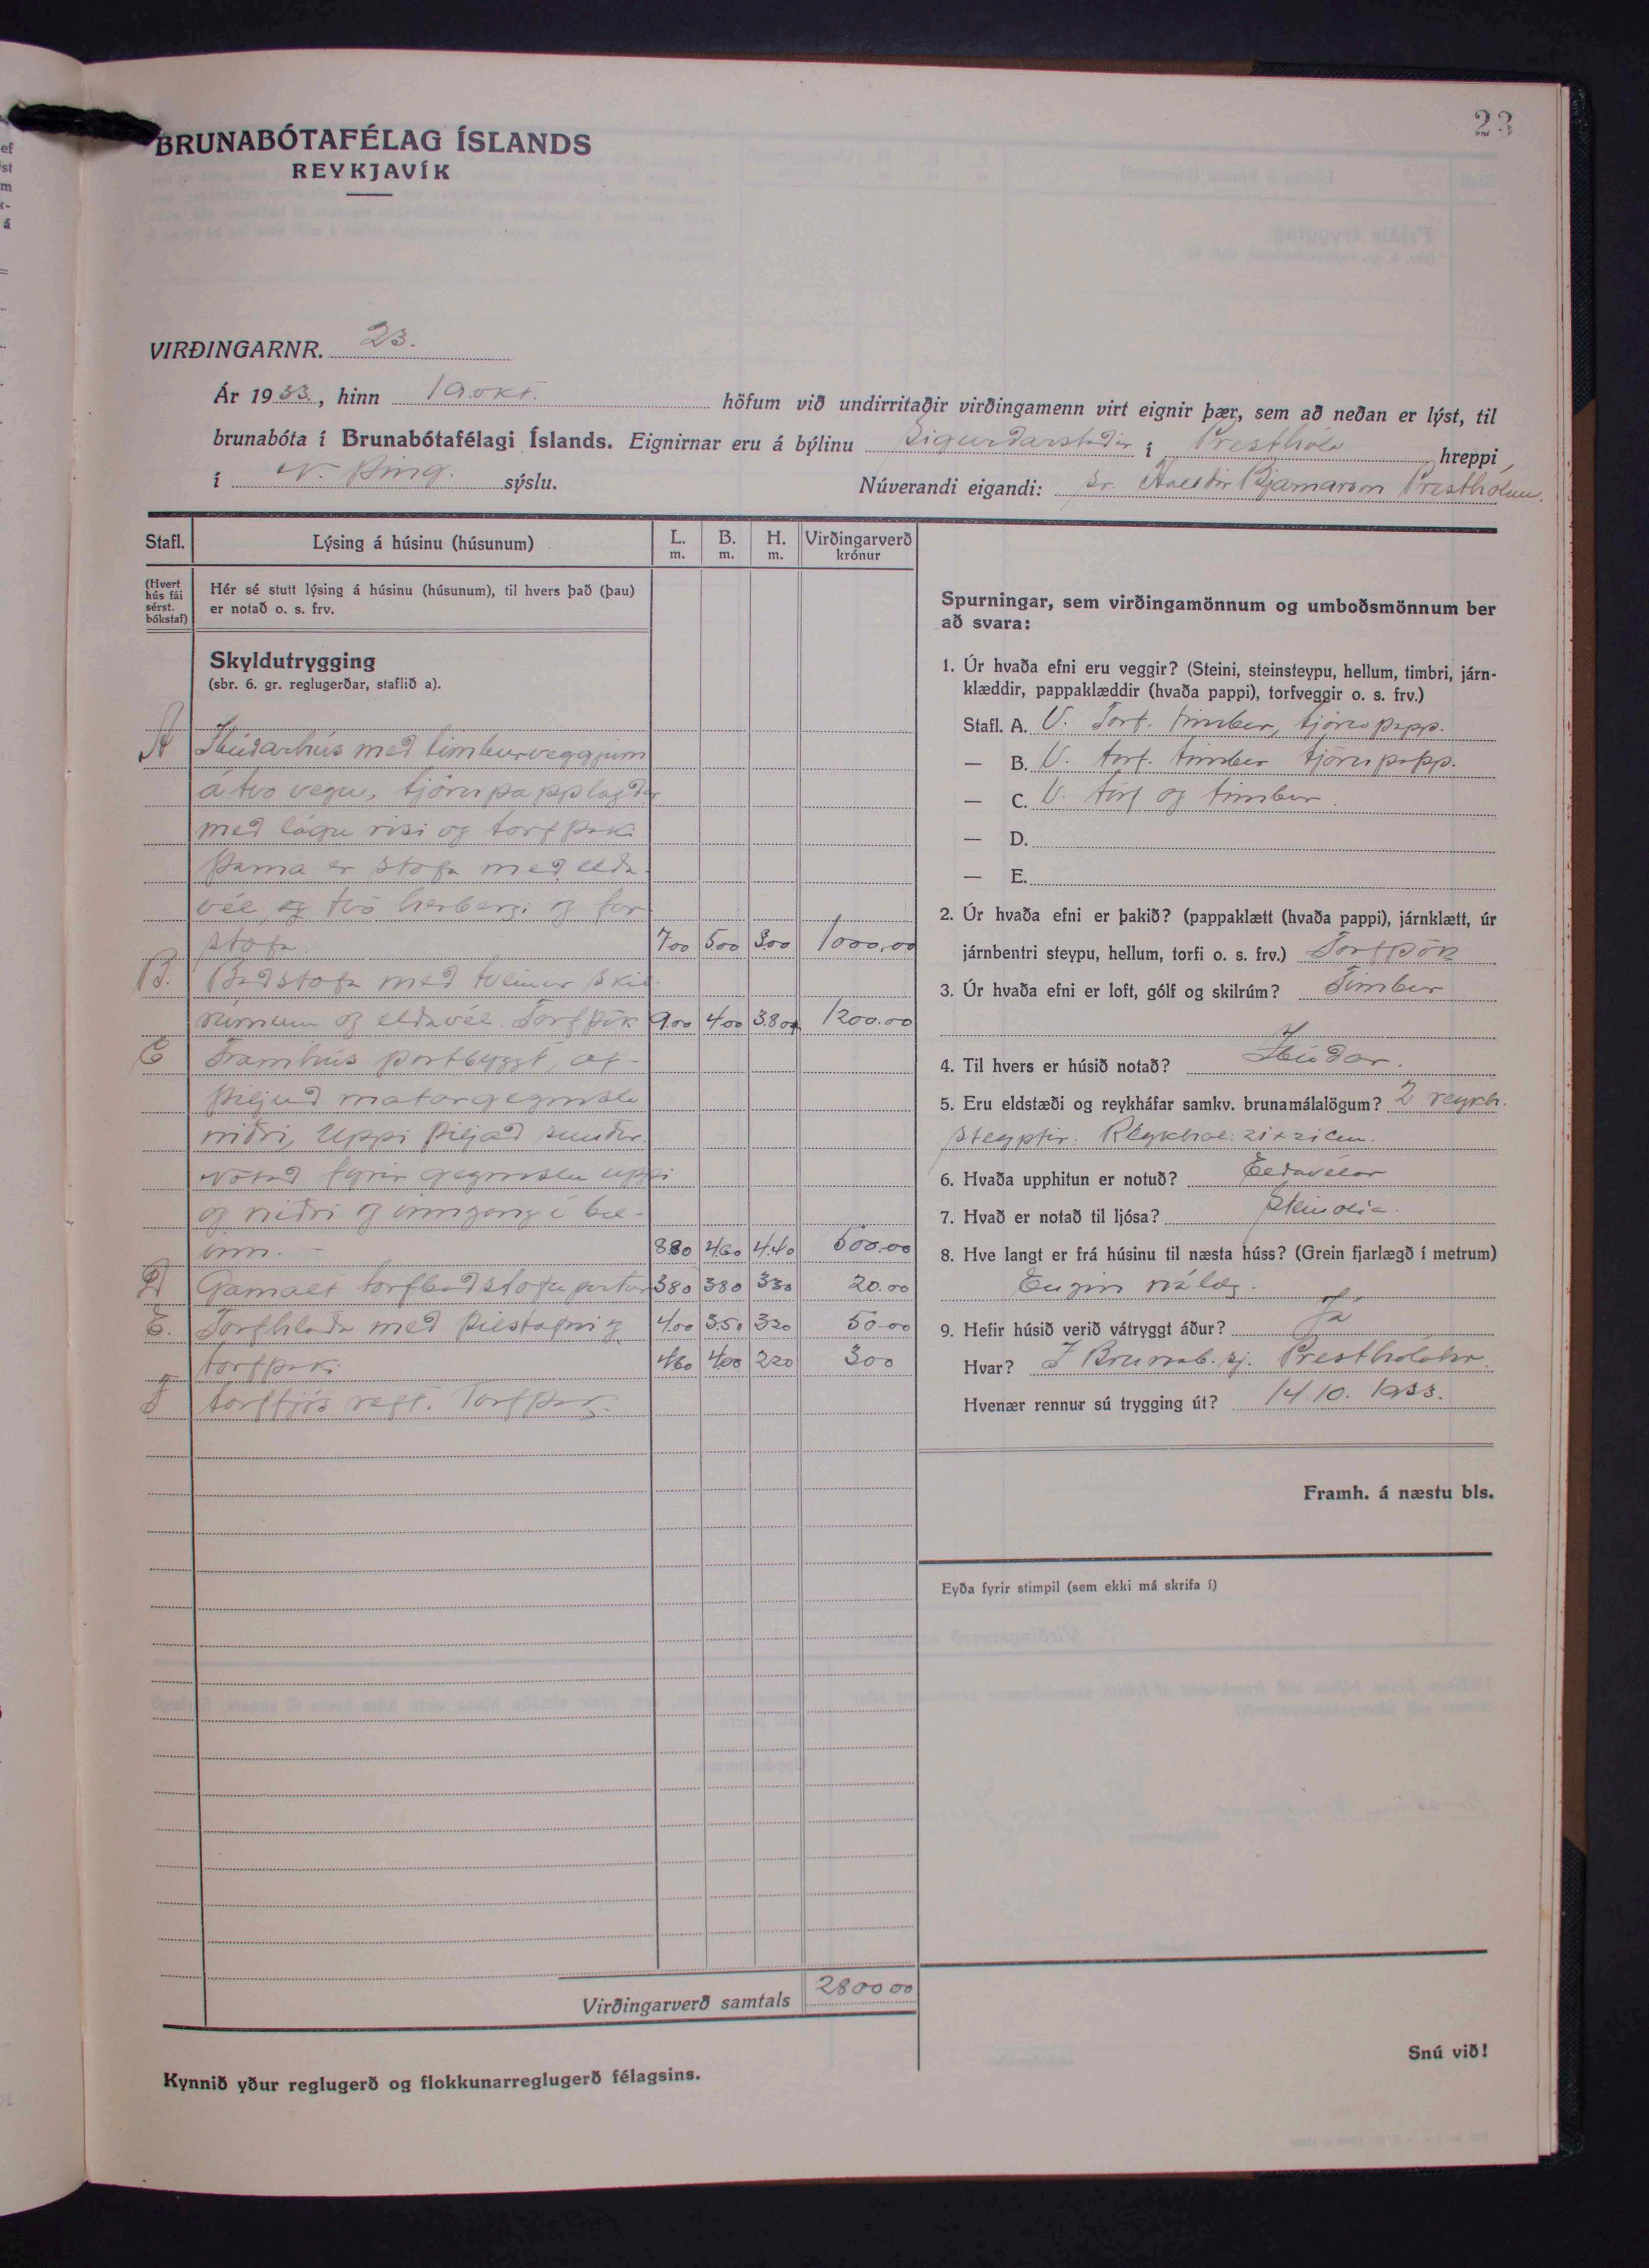 23
BRUNABÓTAFÉLAG ÍSLANDS
REYKJAVÍK
VIRÐINGARNR. 23.
Ár 1933, hinn 19. okt. höfum við undirritaðir virðingamenn virt eignir þær, sem að neðan er lýst, til
brunabóta í Brunabótafélagi Íslands. Eignirnar eru á býlinu Sigurðarstaðir í Presthóla hreppi
í N. Þing. sýslu. Núverandi eigandi: sr. Halldór Bjarnarson Presthólum.
Stafl. Lýsing á húsinu (húsunum) L. m. B. m. H. m. Virðingarverð krónur
(Hvert hús fái sérst. bókstaf)
Hér sé stutt lýsing á húsinu (húsunum), til hvers það (þau)
er notað o. s. frv.
Skyldutrygging
(sbr. 6. gr. reglugerðar, staflið a).
A Íbúðarhús með timburveggjum
á tvo vegu, tjörupapplagðir
með lágu risi og torfþaki
Þarna er stofa með elda
vél, og tvö herbergi og for
stofa 700 500 300 1000,00
B. Baðstofa með tveimur skil-
rúmum og eldavél. Torfþök 9.00 400 3.80 1200.00
C Framhús portbyggt, af-
þiljuð matargeymsla
niðri, Uppi þiljað sundur.
Notað fyrir geymslu uppi
og niðri og inngang í bæ-
inn. 880 4.60 4.40 500.00
D Gamalt torfbaðstofu partur 380 380 330 20.00
E. Torfhlaða með þilstafni og 4.00 3.50 320 50.00
torfþaki. 460 400 220 300
F torffjós reft. Torfþak.
Virðingarverð samtals 2800 00
Kynnið yður reglugerð og flokkunarreglugerð félagsins.
Spurningar, sem virðingamönnum og umboðsmönnum ber
að svara:
1. Úr hvaða efni eru veggir? (Steini, steinsteypu, hellum, timbri, járn-
klæddir, pappaklæddir (hvaða pappi), torfveggir o. s. frv.)
Stafl. A. V. Torf. timber, tjörupapp.
— B. V. torf. timber tjörupapp.
— C. V. torf og timbur
— D.
— E.
2. Úr hvaða efni er þakið? (pappaklætt (hvaða pappi), járnklætt, úr
járnbentri steypu, hellum, torfi o. s. frv.) Torfþök
3. Úr hvaða efni er loft, gólf og skilrúm? Timbur
4. Til hvers er húsið notað? Íbúðar.
5. Eru eldstæði og reykháfar samkv. brunamálalögum? 2 reykh.
steyptir.
6. Hvaða upphitun er notuð? Eldavélar
7. Hvað er notað til ljósa? Steinolía.
8. Hve langt er frá húsinu til næsta húss? (Grein fjarlægð í metrum)
Engin nálæg.
9. Hefir húsið verið vátryggt áður? Já
Hvar? Í Brunab. sj. Presthólahr.
Hvenær rennur sú trygging út? 14.10. 1933.
Framh. á næstu bls.
Eyða fyrir stimpil (sem ekki má skrifa í)
Snú við!